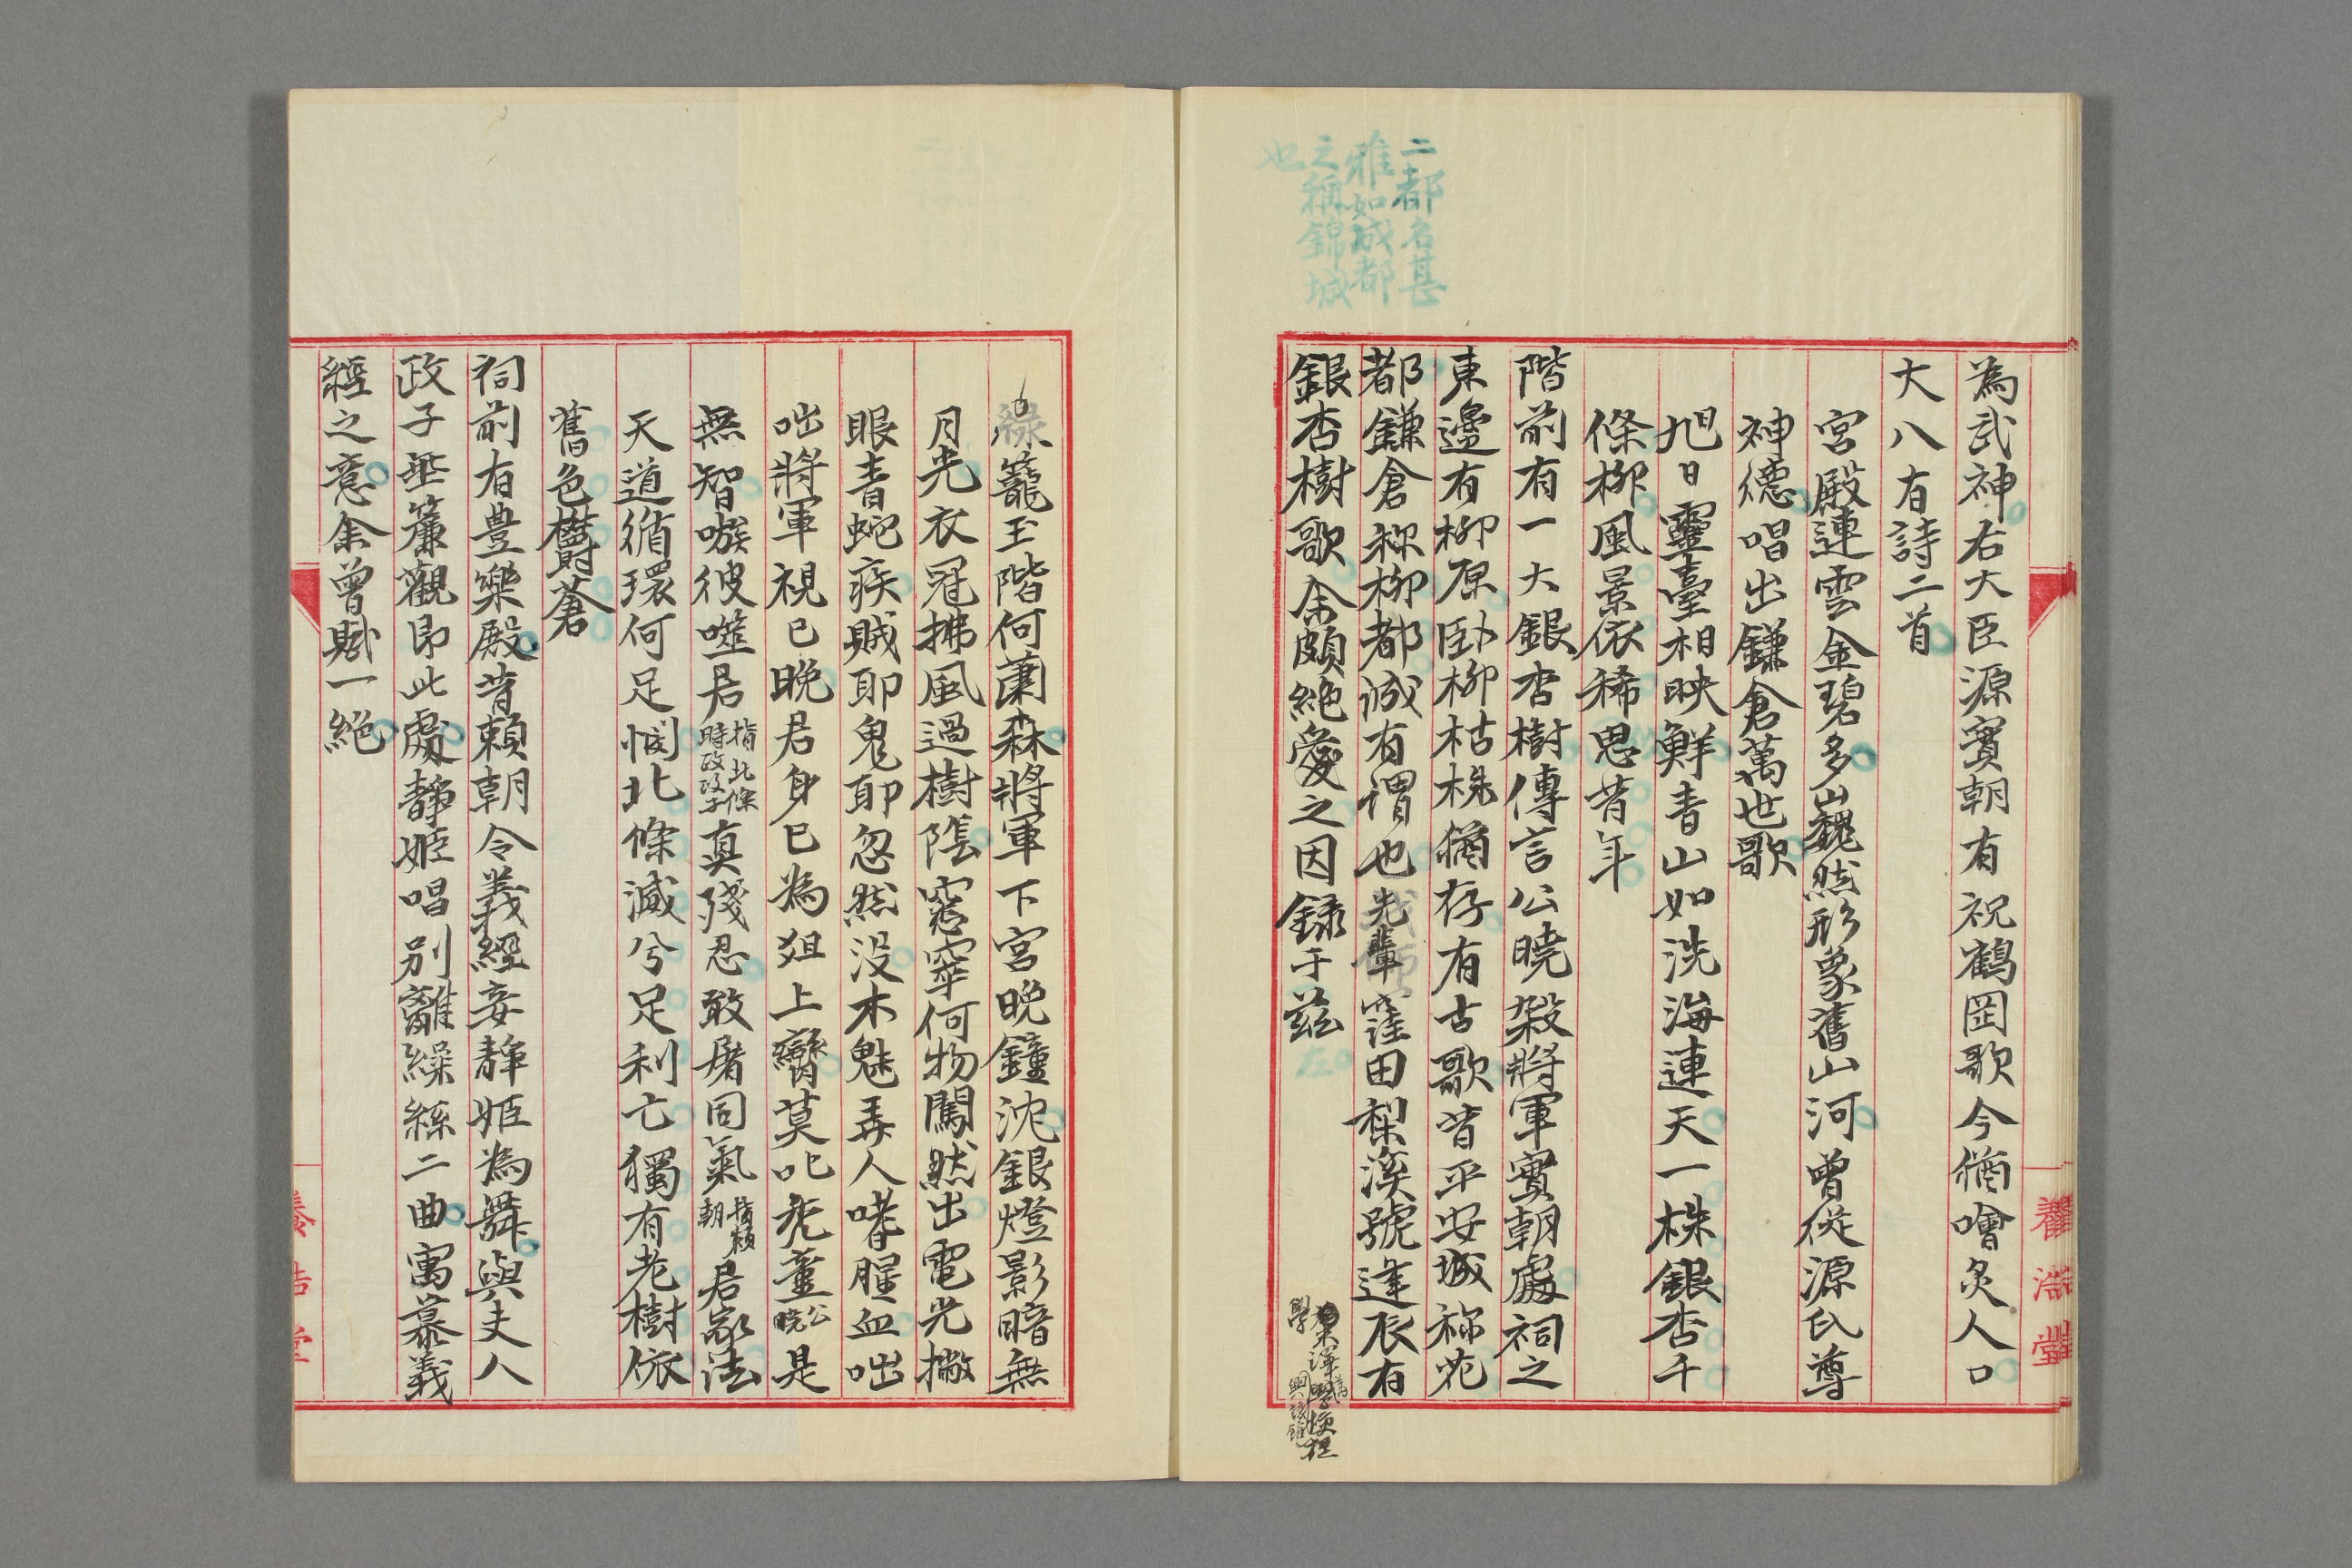 二都名甚
雅如成都
之稱錦城
也
為武神右大臣源實朝有祝鶴岡歌今猶噲炙人口
大八有詩二首
宮殿連雲金碧多巍然形象舊山河曾從源氏尊
神德唱出鎌倉萬世歌
旭日靈臺相映鮮青山如洗海連天一株銀杏千
條柳風景依稀思昔年
階前有一大銀杏樹傳言公曉殺將軍實朝處祠之
東邊有柳原臥柳枯株猶存有古歌昔平安城稱花
都鎌倉称柳都誠有謂也先輩窪田梨溪號逢辰有
銀杏樹歌余頗絶愛之因録于茲
籠玉階何蕭森將軍下宮晚鐘沈銀燈影暗無
月光衣冠拂風過樹陰窸窣何物闖然出電光撇
眼青蛇疾賊耶鬼耶忽然没木魅弄人嗜腥血咄
咄將軍視已晚君身已為爼上臠莫叱禿童公曉是
無智嗾彼噬君指北條時政政子真殘忍敢屠同氣指頼朝君家法
天道循環何足憫北條滅兮足利亡獨有老樹依
舊色欝蒼
祠前有豊樂殿昔頼朝令義經妾靜姬為舞與夫人
政子垂簾觀即此處靜姬唱別離繰絲二曲寓慕義
經之意余曾賦一絶
養浩堂